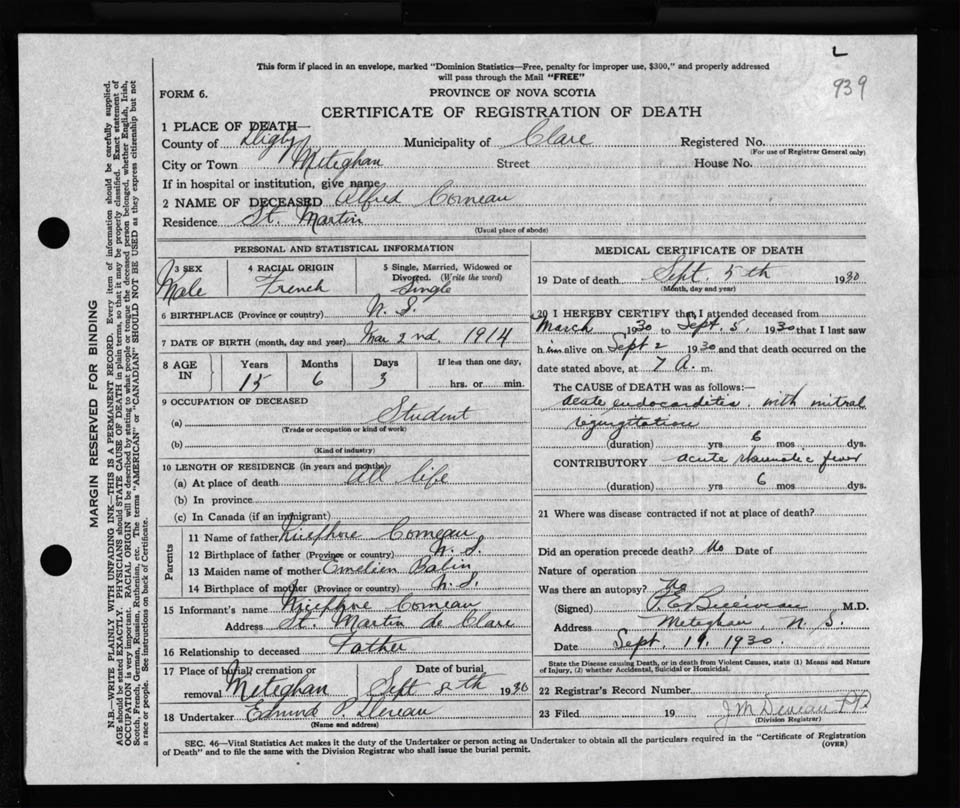 L
939
This form if placed in an envelope, marked "Dominion Statistics—Free, penalty for improper use, $300," and properly addressed
will pass through the Mail "FREE"
FORM 6.
PROVINCE OF NOVA SCOTIA
CERTIFICATE OF REGISTRATION OF DEATH
1 PLACE OF DEATH—
County of Digby Municipality of Clare Registered No.
(For use of Registrar General only)
City or Town Meteghan Street House No.
If in hospital or institution, give name
2 NAME OF DECEASED Alfred Comeau
Residence St. Martin
(Usual place of abode)
PERSONAL AND STATISTICAL INFORMATION
3 SEX
Male
4 RACIAL ORIGIN
French
5 Single, Married, Widowed or
Divorced. (Write the word)
Single
6 BIRTHPLACE (Province or country) N. S.
7 DATE OF BIRTH (month, day and year) Mar 2nd. 1914
8 AGE IN
Years Months Days If less than one day,
15 6 3 hrs. or min.
9 OCCUPATION OF DECEASED
(a) Student
(Trade or occupation or kind of work)
(b)
(Kind of industry)
10 LENGTH OF RESIDENCE (in years and months)
(a) At place of death All life
(b) In province
(c) In Canada (if an immigrant)
Parents
11 Name of father Nicephore Comeau
12 Birthplace of father (Province or country) N. S.
13 Maiden name of mother Emelien
14 Birthplace of mother (Province or country) N. S.
15 Informant's name Nicephore Comeau
Address St. Martin de Clare
16 Relationship to deceased Father
17 Place of burial, cremation or
removal Meteghan
Date of burial
Sept 8th 1930
18 Undertaker Edmund P. Deveau
(Name and address)
MEDICAL CERTIFICATE OF DEATH
19 Date of death Sept. 5th 1930
(Month, day and year)
20 I HEREBY CERTIFY that I attended deceased from
March 1930 to Sept. 5. 1930 that I last saw
him alive on Sept 2 1930 and that death occurred on the
date stated above, at 7 A. m.
The CAUSE OF DEATH was as follows:—
Acute endocarditis. with mitral
regurgitation
(duration) yrs 6 mos dys.
CONTRIBUTORY acute rheumatic fever
(duration) yrs 6 mos dys.
21 Where was disease contracted if not at place of death?
Did an operation precede death? No Date of
Nature of operation
Was there an autopsy? No
(Signed) P. E. M.D.
Address Meteghan, N. S.
Date Sept. 19. 1930.
State the Disease causing Death, or in death from Violent Causes, state (1) Means and Nature
of Injury, (2) whether Accidental, Suicidal or Homicidal.
22 Registrar's Record Number
23 Filed 19 J M Deveau
(Division Registrar)
SEC. 46—Vital Statistics Act makes it the duty of the Undertaker or person acting as Undertaker to obtain all the particulars required in the "Certificate of Registration
of Death" and to file the same with the Division Registrar who shall issue the burial permit.
(OVER)
MARGIN RESERVED FOR BINDING
N.B.—WRITE PLAINLY WITH UNFADING INK—THIS IS A PERMANENT RECORD. Every item of information should be carefully supplied.
AGE should be stated EXACTLY. PHYSICIANS should STATE CAUSE OF DEATH in plain terms, so that it may be properly classified. Exact statement of
OCCUPATION is very important. RACIAL ORIGIN will be described by stating to what people or tongue the deceased person belonged, whether English, Irish,
Scotch, French, German, Russian, Ruthenian, etc. The terms "AMERICAN" or "CANADIAN" SHOULD NOT BE USED as they express citizenship but not
a race or people. See instructions on back of Certificate.